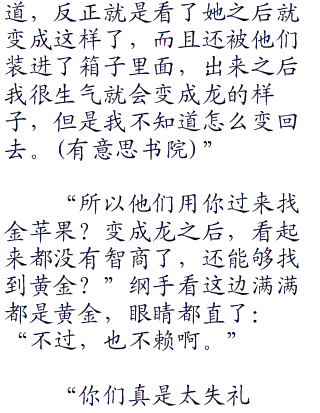 道，反正就是看了她之后就
变成这样了，而且还被他们
装进了箱子里面，出来之后
我很生气就会变成龙的样
子，但是我不知道怎么变回
去。(有意思书院)”
“所以他们用你过来找
金苹果？变成龙之后，看起
来都没有智商了，还能够找
到黄金？”纲手看这边满满
都是黄金，眼睛都直了：
“不过，也不赖啊。”
“你们真是太失礼